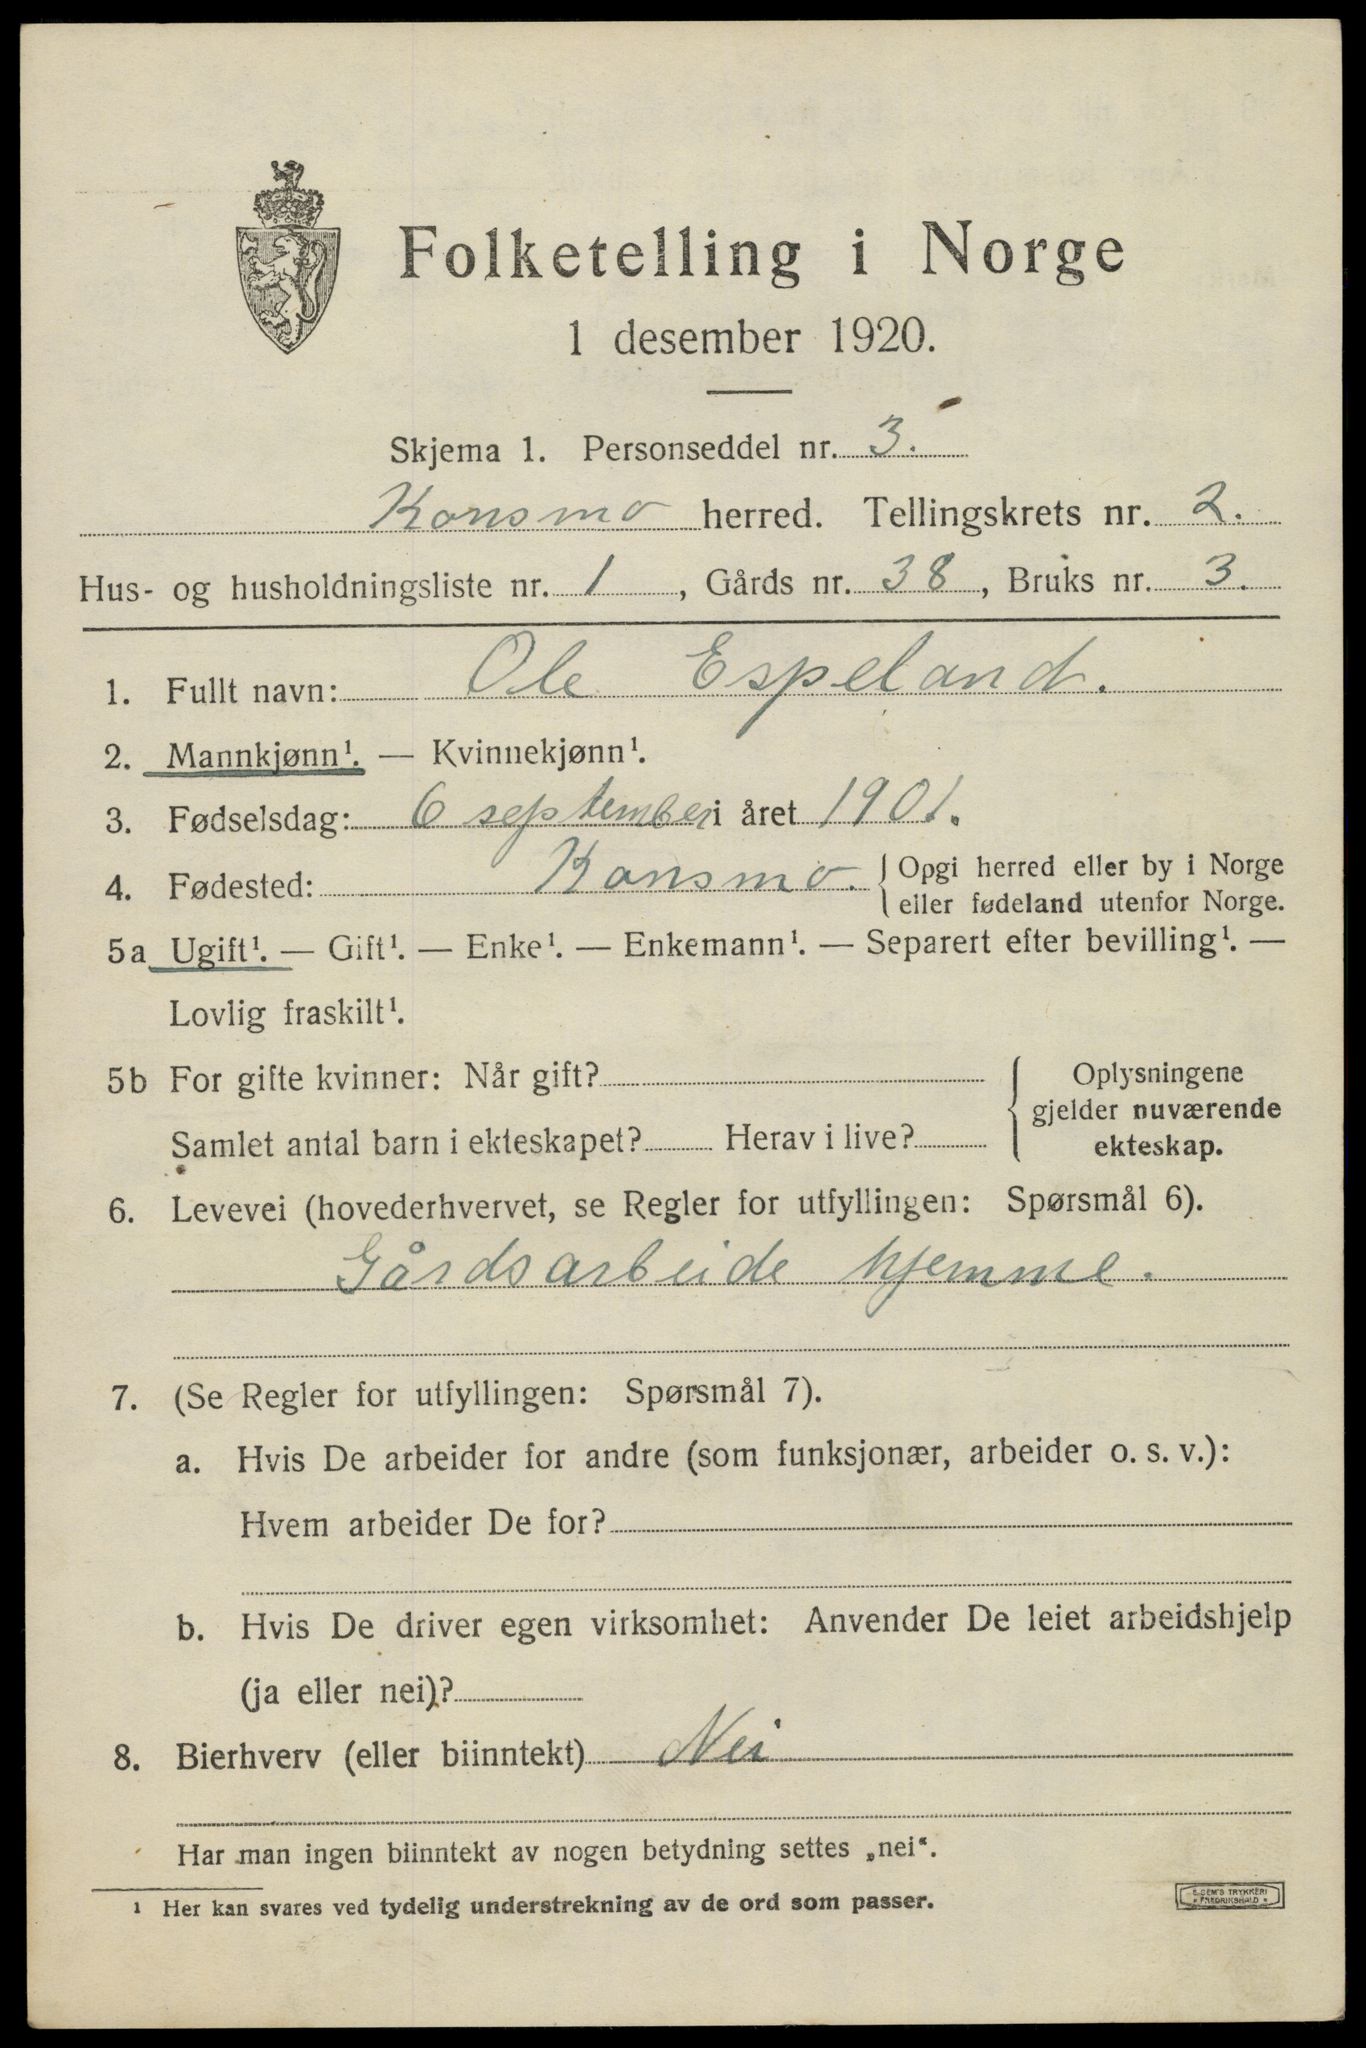 Folketelling i Norge
1 desember 1920.
Skjema 1. Personseddel nr. 3.
Konsmo herred. Tellingskrets nr. 2.
Hus- og husholdningsliste nr. 1, Gårds nr. 38, Bruks nr. 3.
1. Fullt navn: Ole Espeland.
2. Mannkjønn¹. — Kvinnekjønn¹.
3. Fødselsdag: 6 september i året 1901.
4. Fødested: Konsmo. { Opgi herred eller by i Norge
eller fødeland utenfor Norge.
5a Ugift¹. — Gift¹. — Enke¹. — Enkemann¹. — Separert efter bevilling¹. —
Lovlig fraskilt¹.
5b For gifte kvinner: Når gift? { Oplysningene
gjelder nuværende
Samlet antal barn i ekteskapet? Herav i live? ekteskap.
6. Levevei (hovederhvervet, se Regler for utfyllingen: Spørsmål 6).
Gårdsarbeide hjemme.
7. (Se Regler for utfyllingen: Spørsmål 7).
a. Hvis De arbeider for andre (som funksjonær, arbeider o. s. v.):
Hvem arbeider De for?
b. Hvis De driver egen virksomhet: Anvender De leiet arbeidshjelp
(ja eller nei)?
8. Bierhverv (eller biinntekt) Nei
Har man ingen biinntekt av nogen betydning settes „nei“.
¹ Her kan svares ved tydelig understrekning av de ord som passer.
E. SEM'S TRYKKERI
• FREDRIKSHALD •